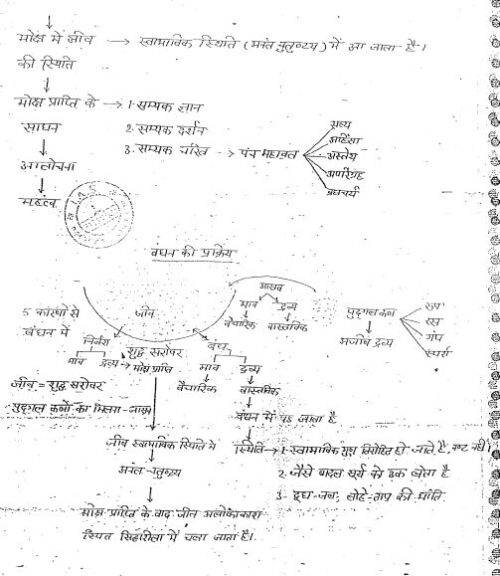 मोक्ष में जीव → स्वाभाविक स्थिति (अनंत चतुष्टय) में आ जाता है।
की स्थिति
मोक्ष प्राप्ति के → 1. सम्यक ज्ञान
साधन
2. सम्यक दर्शन
3. सम्यक चरित्र → पंच महाव्रत
सत्य
अहिंसा
अस्तेय
अपरिग्रह
ब्रह्मचर्य
आलोचना
महत्व
I.A.S
बंधन की प्रक्रिया
आस्रव
भाव द्रव्य
वैचारिक वास्तविक
5 कारणों से
बंधन में
जीव
पुद्गल कण
अजीव द्रव्य
रूप
रस
गंध
स्पर्श
निर्जरा
भाव द्रव्य
शुद्ध सरोवर
मोक्ष प्राप्ति
बंध
भाव द्रव्य
वैचारिक वास्तविक
जीव = शुद्ध सरोवर
पुद्गल कणों का मिलना -
बंधन में पड़ जाता है
जीव स्वाभाविक स्थिति में
स्थिति → 1. स्वाभाविक गुण तिरोहित हो जाते है, नष्ट नहीं।
अनंत चतुष्टय
2. जैसे बादल सूर्य को ढक लेता है
3. दूध-जल; लोहे-ताप की भांति
मोक्ष प्राप्ति के बाद जीव अलोकाकाश
स्थित सिद्धशिला में चला जाता है।